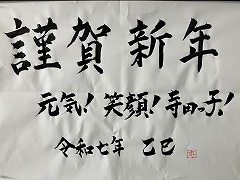 謹賀新年
元気！笑顔！寺田っ子！
令和七年 乙巳